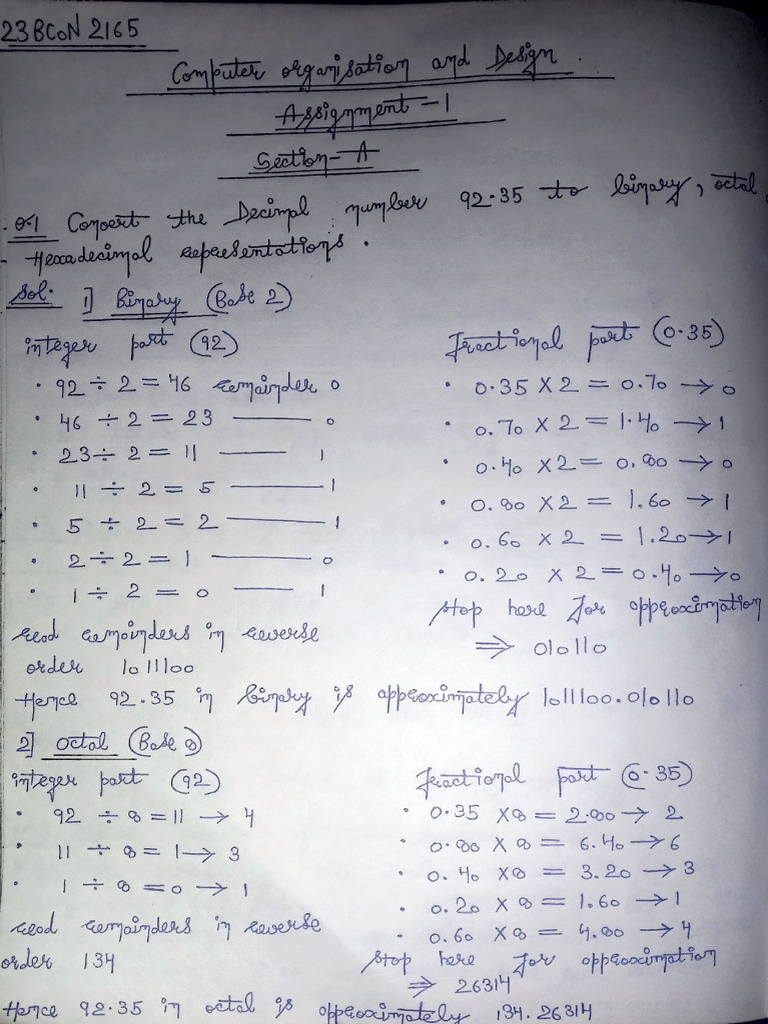 23BCON2165
Computer organisation and Design.
Assignment-1
Section-A
Q.1 Convert the Decimal number 92.35 to binary, octal,
Hexadecimal representations.
Sol. 1] Binary (Base 2)
integer part (92)
• 92 ÷ 2 = 46 remainder 0
• 46 ÷ 2 = 23 —— 0
• 23 ÷ 2 = 11 —— 1
• 11 ÷ 2 = 5 —— 1
• 5 ÷ 2 = 2 —— 1
• 2 ÷ 2 = 1 —— 0
• 1 ÷ 2 = 0 —— 1
read remainders in reverse
order 1011100
Fractional part (0.35)
• 0.35 X 2 = 0.70 → 0
• 0.70 X 2 = 1.40 → 1
• 0.40 X 2 = 0.80 → 0
• 0.80 X 2 = 1.60 → 1
• 0.60 X 2 = 1.20 → 1
• 0.20 X 2 = 0.40 → 0
stop here for approximation
⇒ 010110
Hence 92.35 in binary is approximately 1011100.010110
2] octal (Base 8)
integer part (92)
• 92 ÷ 8 = 11 → 4
• 11 ÷ 8 = 1 → 3
• 1 ÷ 8 = 0 → 1
read remainders in reverse
order 134
Fractional part (0.35)
• 0.35 X 8 = 2.80 → 2
• 0.80 X 8 = 6.40 → 6
• 0.40 X 8 = 3.20 → 3
• 0.20 X 8 = 1.60 → 1
• 0.60 X 8 = 4.80 → 4
stop here for approximation
⇒ 26314
Hence 92.35 in octal is approximately 134.26314